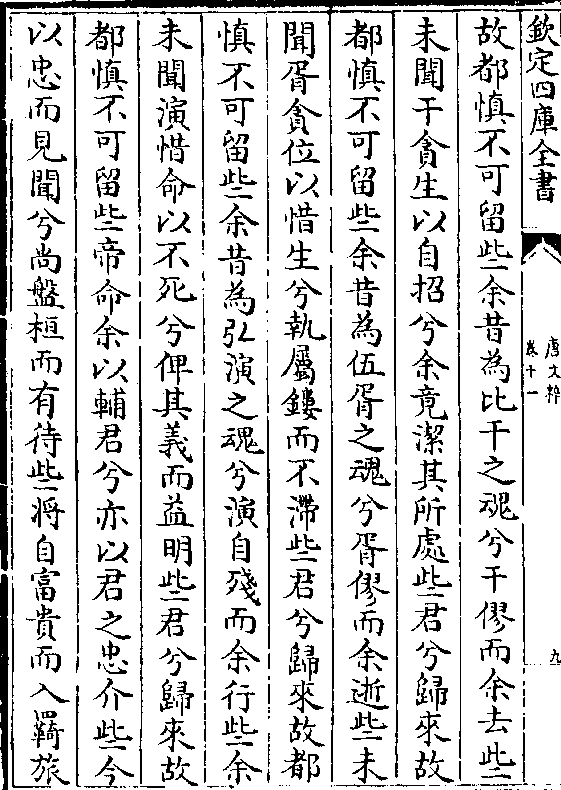 欽定四庫全書
唐文粹
卷十一
九
故都慎不可留些余昔為比干之魂兮干僇而余去些
未聞干貪生以自招兮余竟潔其所處些君兮歸來故
都慎不可留些余昔為伍胥之魂兮胥僇而余逝些未
聞胥貪位以惜生兮執屬鏤而不滯些君兮歸來故都
慎不可留些余昔為弘演之魂兮演自殘而余行些余
未聞演惜命以不死兮俾其義而益明些君兮歸來故
都慎不可留些帝命余以輔君兮亦以君之忠介些今
以忠而見聞兮尚盤桓而有待些將自富貴而入羇旅